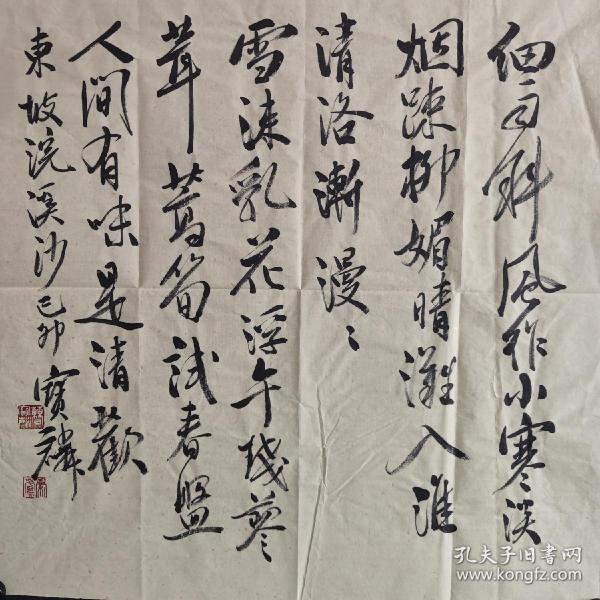 細雨斜風作小寒淡
烟疎柳媚晴灘入淮
清洛漸漫〻
雪沫乳花浮午琖蓼
茸蒿筍試春盤
人間有味是清歡
東坡浣溪沙己卯寶
孔夫子旧書网
www.kongfz.com